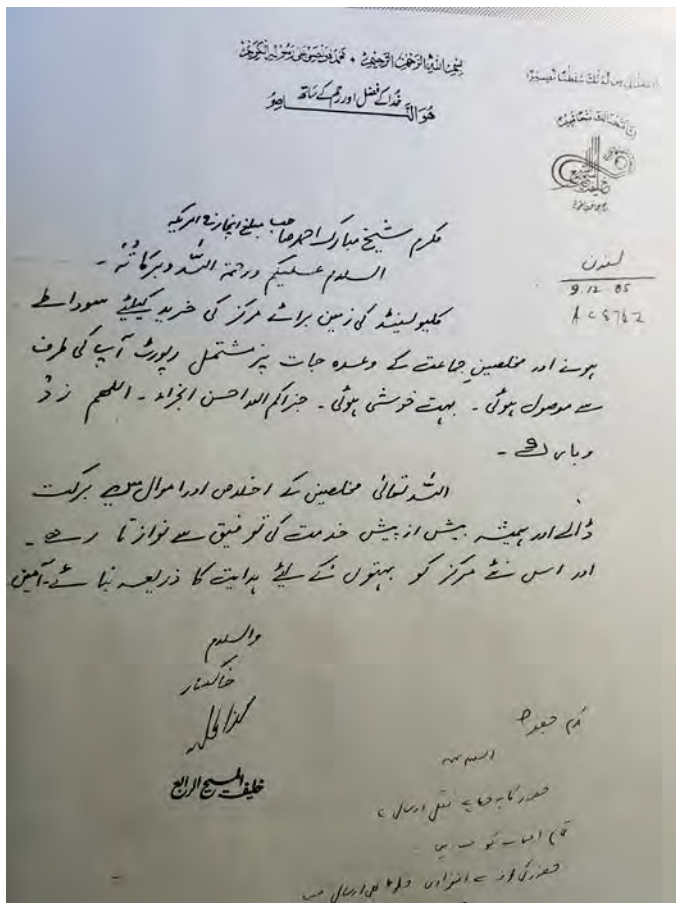 بسم اللہ الرحمن الرحیم ۰ نحمدہ ونصلی علی رسولہ الکریم
خدا کے فضل اور رحم کے ساتھ
ھو الناصر
لندن
9.12.85
AC8762
مکرم شیخ مبارک احمد صاحب مبلغ انچارج امریکہ
السلام علیکم ورحمۃ اللہ وبرکاتہ ۔
کلیولینڈ کی زمین برائے مرکز کی خرید کیلئے سودا طے
ہونے اور مخلصین جماعت کے وعدہ جات پر مشتمل رپورٹ آپ کی طرف
سے موصول ہوئی ۔ بہت خوشی ہوئی ۔ جزاکم اللہ احسن الجزاء ۔ اللھم زد
وبارک ۔
اللہ تعالیٰ مخلصین کے اخلاص اور اموال میں برکت
ڈالے اور ہمیشہ بیش از پیش خدمت کی توفیق سے نوازتا رہے ۔
اور اس نئے مرکز کو بہتوں کے لئے ہدایت کا ذریعہ بنائے ۔ آمین
والسلام
خاکسار
خلیفۃ المسیح الرابع